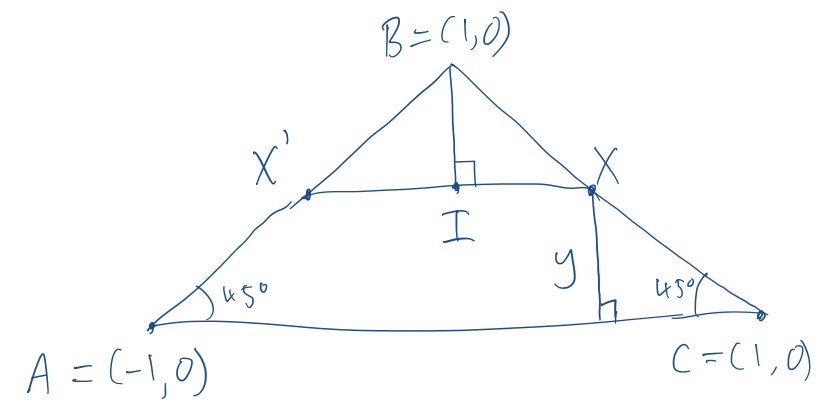 B=(1,0)
X'
X
I
y
45°
45°
A=(-1,0)
C=(1,0)